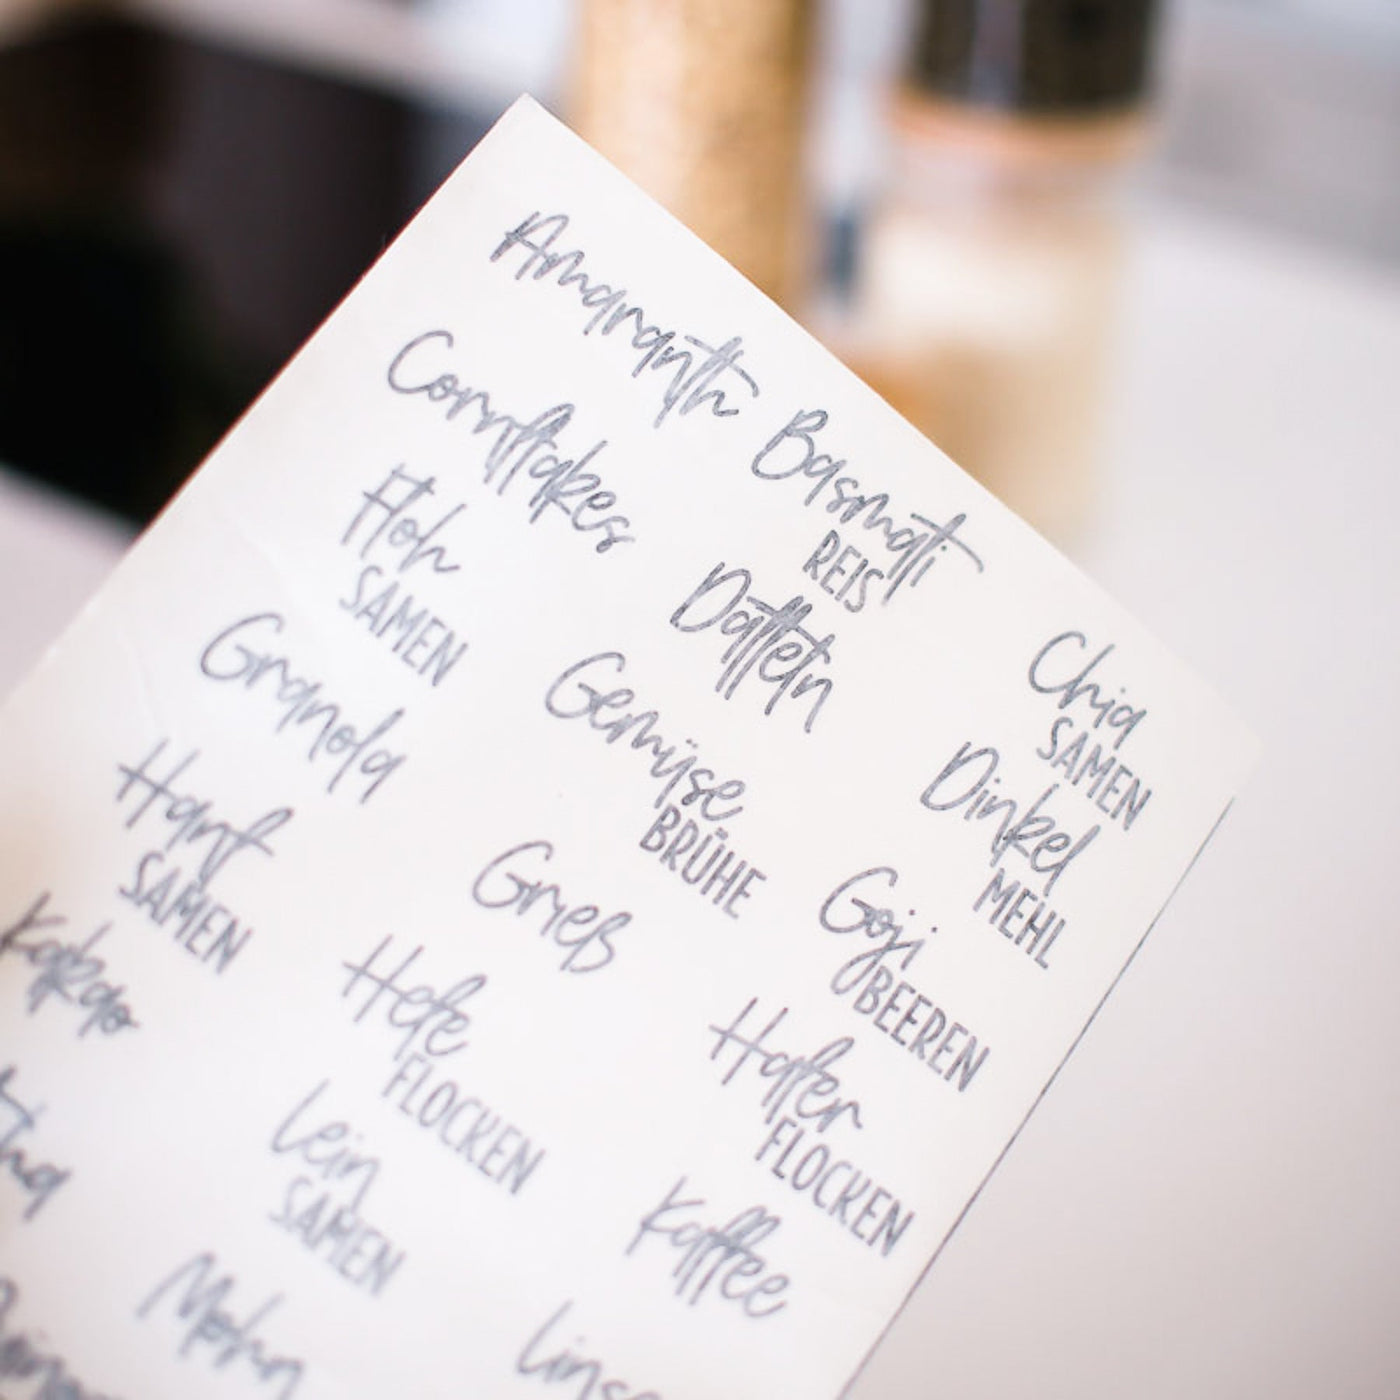 Amaranth
Basmati
REIS
Chia
SAMEN
Cornflakes
Datteln
Dinkel
MEHL
Floh
SAMEN
Gemüse
BRÜHE
Goji
BEEREN
Granola
Grieß
Hafer
FLOCKEN
Hanf
SAMEN
Hefe
FLOCKEN
Kaffee
Kakao
Lein
SAMEN
Mohn